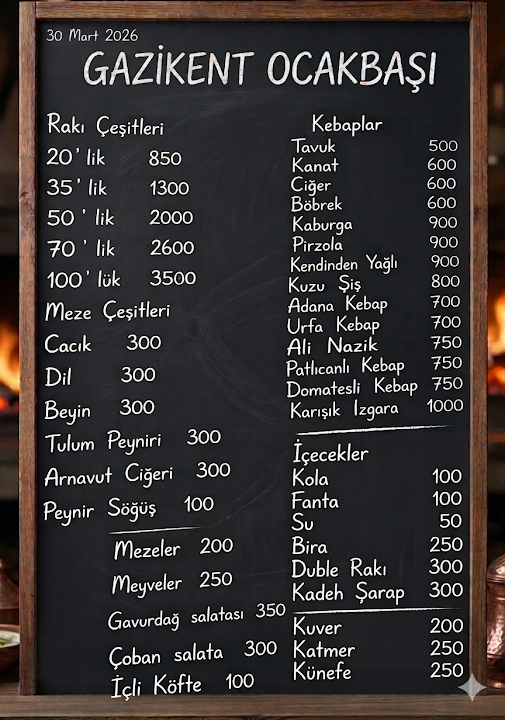 30 Mart 2026
GAZİKENT OCAKBAŞI
Rakı Çeşitleri
20' lik 850
35' lik 1300
50' lik 2000
70' lik 2600
100' lük 3500
Meze Çeşitleri
Cacık 300
Dil 300
Beyin 300
Tulum Peyniri 300
Arnavut Ciğeri 300
Peynir Söğüş 100
Mezeler 200
Meyveler 250
Gavurdağ salatası 350
Çoban salata 300
İçli Köfte 100
Kebaplar
Tavuk 500
Kanat 600
Ciğer 600
Böbrek 600
Kaburga 900
Pirzola 900
Kendinden Yağlı 900
Kuzu Şiş 800
Adana Kebap 700
Urfa Kebap 700
Ali Nazik 750
Patlıcanlı Kebap 750
Domatesli Kebap 750
Karışık Izgara 1000
İçecekler
Kola 100
Fanta 100
Su 50
Bira 250
Duble Rakı 300
Kadeh Şarap 300
Kuver 200
Katmer 250
Künefe 250